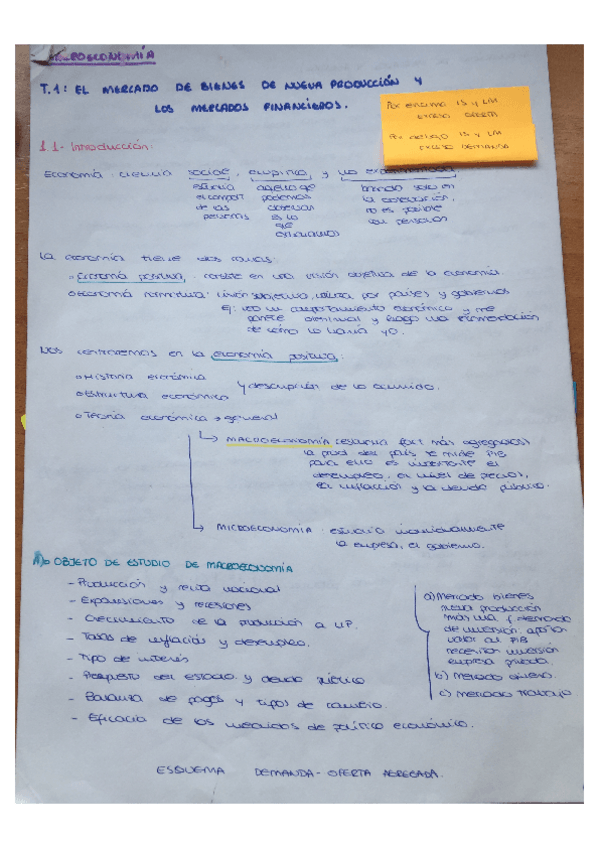 MACROECONOMÍA
T.1: EL MERCADO DE BIENES DE NUEVA PRODUCCIÓN Y
LOS MERCADOS FINANCIEROS.
Por encima IS y LM
EXCESO OFERTA
Por debajo IS y LM
EXCESO DEMANDA
1.1- Introducción:
Economía: ciencia social, empírica, y no experimental
estudia
el comport
de las
personas
aquello que
podemos
observar
es lo
que
estudiamos
basado solo en
la observación,
no es posible
con personas
La economía tiene dos ramas:
Economía positiva: consiste en una visión objetiva de la economía.
Economía normativa: visión subjetiva, utilizada por países y gobiernos
ej: veo un comportamiento económico y me
parece y hago una recomendación
de cómo lo haría yo.
Nos centraremos en la economía positiva:
Historia económica
Estructura económica
y descripción de lo ocurrido.
Teoría económica → general
MACROECONOMÍA (esquema fact. más agregados)
la prod del país se mide PIB
para ello es importante el
desempleo, el nivel de precios,
la inflación y la deuda pública.
MICROECONOMÍA: estudia individualmente
la empresa, el gobierno.
A) OBJETO DE ESTUDIO DE MACROECONOMÍA
- Producción y renta nacional
- Expansiones y recesiones
- Crecimiento de la producción a LP.
- Tasas de inflación y desempleo.
- Tipo de interés
- Presupuesto del estado y deuda pública
- Balanza de pagos y tipos de cambio.
- Eficacia de las medidas de política económica.
a) Mercado bienes
nueva producción
más una (demanda
de inversión. aportan
valor al PIB
necesitan inversión
empresa privada.
b) Mercado dinero.
c) MERCADO TRABAJO
ESQUEMA DEMANDA - OFERTA AGREGADA.